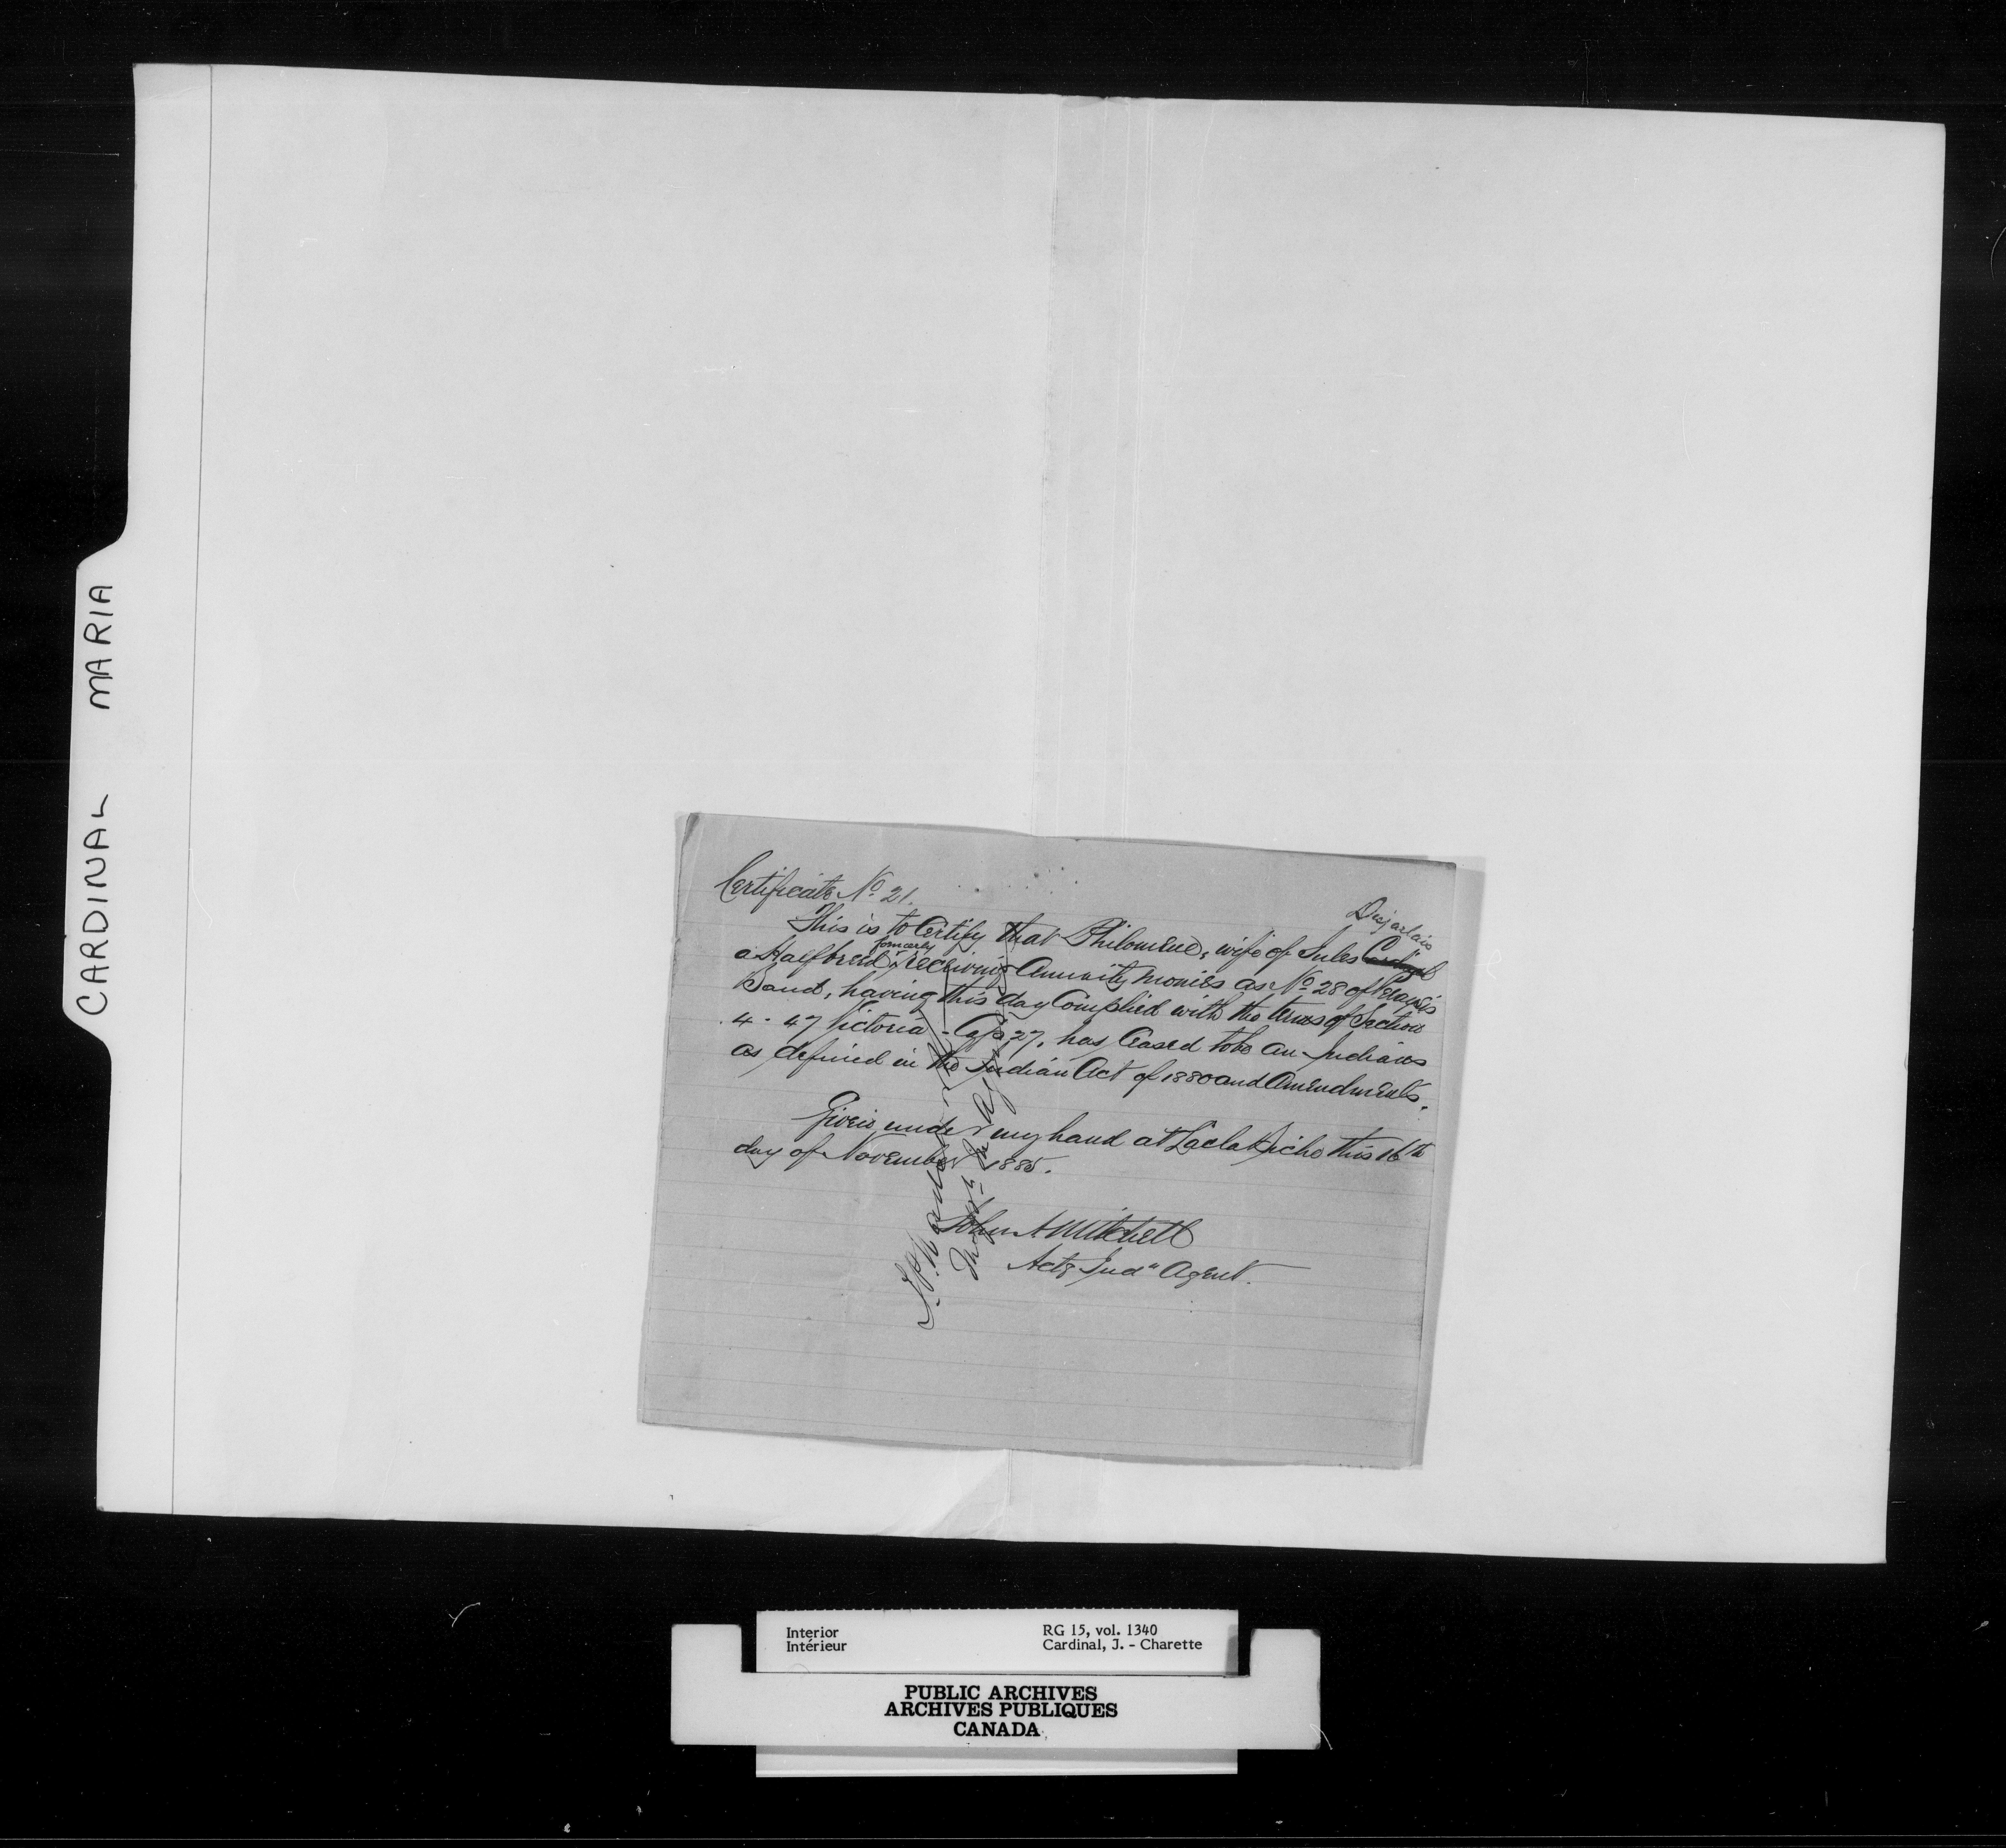 CARDINAL MARIA
Certificate No. 21.
Desjarlais
This is to Certify that Philomene, wife of Jules Cardinal
formerly
a Halfbreed receiving Annuity monies as No. 28 of Peaysis
Band, having this day Complied with the terms of Section
4 - 47 Victoria - Cap 27, has Ceased to be an Indian
as defined in the Indian Act of 1880 and Amendments.
Given under my hand at Lac la Biche this 16th
day of November 1885.
John A Mitchell
Actg Indn Agent.
Interior
Intérieur
RG 15, vol. 1340
Cardinal, J. - Charette
PUBLIC ARCHIVES
ARCHIVES PUBLIQUES
CANADA